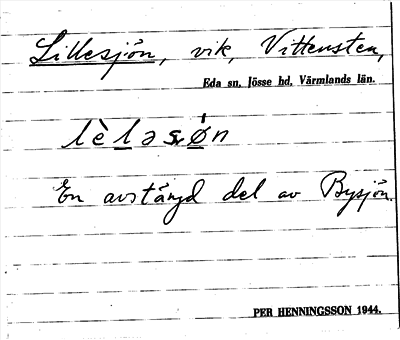 Lillesjön, vik, Vittensten,
Eda sn, Jösse hd, Värmlands län.
lè̱lǝsǿ̱n
En avstängd del av Bysjön.
PER HENNINGSSON 1944.